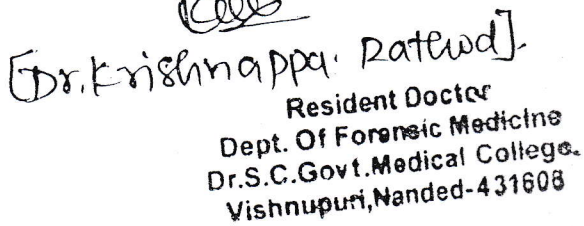 [Dr. Krishnappa. Ratewd].
Resident Doctor
Dept. Of Forensic Medicine
Dr.S.C.Govt.Medical College.
Vishnupuri,Nanded-431608